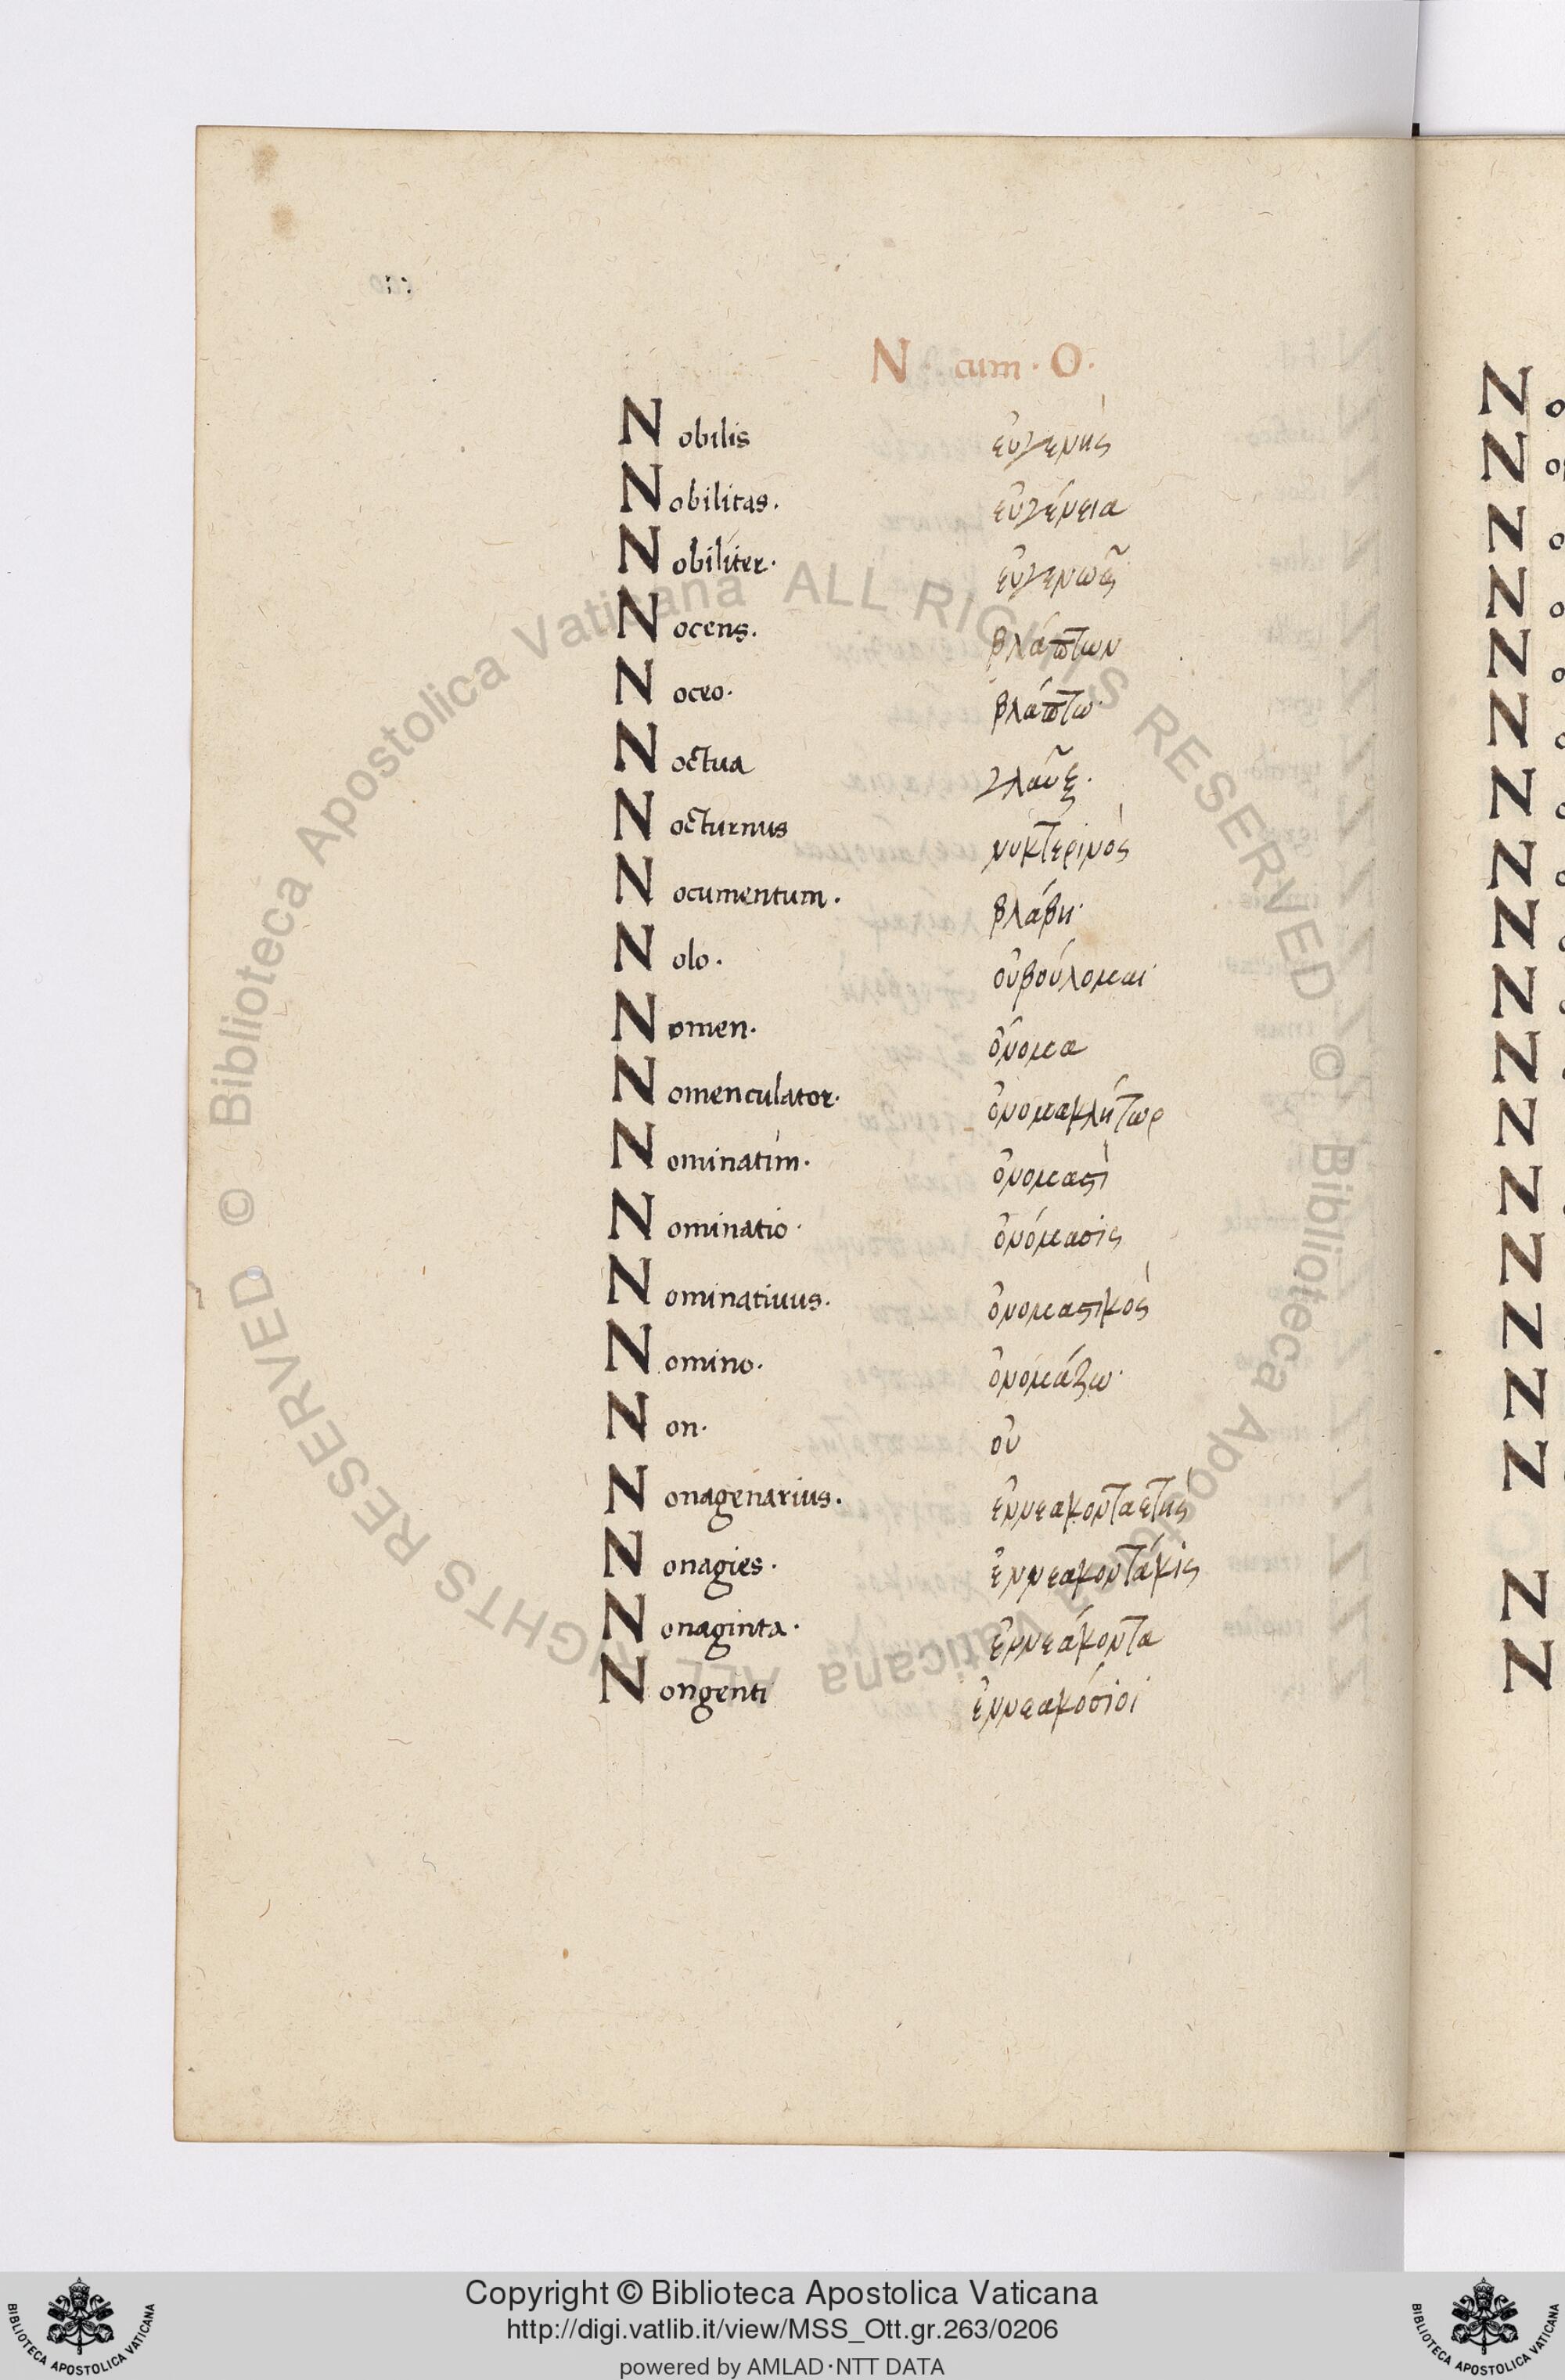 N · cum · O ·
Nobilis εὐγενὴς
Nobilitas. εὐγένεια
Nobiliter. εὐγενῶς
Nocens. βλάπτων
Noceo. βλάπτω·
Noctua γλαῦξ·
Nocturnus νυκτερινὸς
Nocumentum. βλάβη·
Nolo. οὐβούλομαι·
Nomen. ὄνομα
Nomenculator. ὀνομακλήτωρ
Nominatim. ὀνομαστὶ
Nominatio· ὀνόμασις
Nominativus. ὀνομαστικὸς
Nomino. ὀνομάζω·
Non. οὐ
Nonagenarius. ἐννεακονταετὴς
Nonagies. ἐννεακοντάκις
Nonaginta. ἐννεάκοντα
Nongenti ἐννεακόσιοι
© Biblioteca Apostolica Vaticana ALL RIGHTS RESERVED © Biblioteca Apostolica Vaticana ALL RIGHTS RESERVED
Copyright © Biblioteca Apostolica Vaticana
http://digi.vatlib.it/view/MSS_Ott.gr.263/0206
powered by AMLAD·NTT DATA
BIBLIOTECA APOSTOLICA VATICANA
BIBLIOTECA APOSTOLICA VATICANA